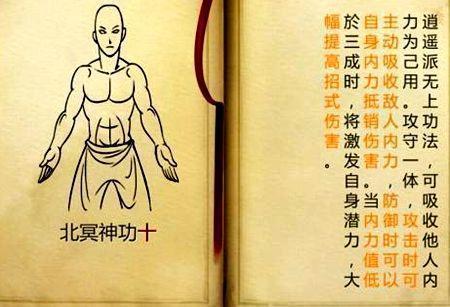 北冥神功十
逍遥派无上功法，可吸收他人内
力为己用。攻守一体，攻击时可
主动吸收敌人内力，防御时可以
自身内力抵销伤害。当内力值低
於三成时，将激发自身潜力，大
幅提高招式伤害。